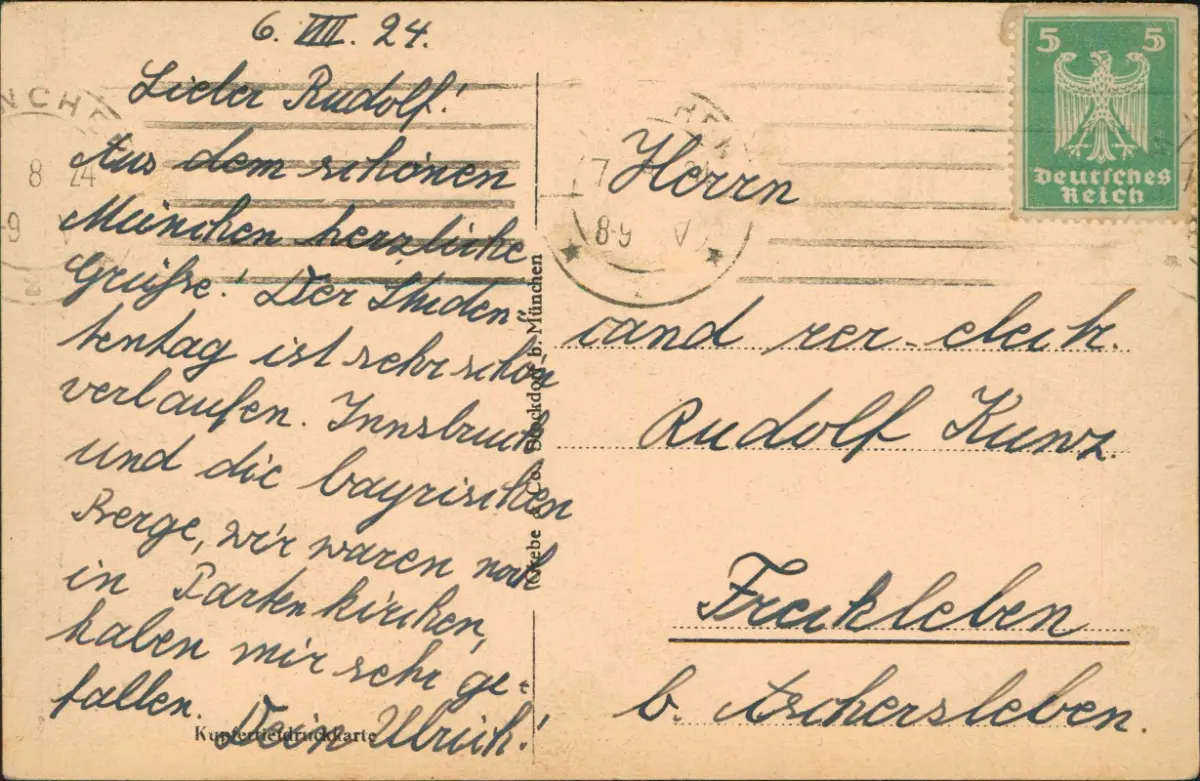 6. VIII. 24.
Lieber Rudolf!
Aus dem schönen
München herzliche
Grüsse! Der Studen-
tentag ist sehr schön
verlaufen. Innsbruck
und die bayrischen
Berge, wir waren noch
in Partenkirchen,
haben mir sehr ge-
fallen.
Dein Ulrich!
Kupfertiefdruckkarte
b. München
Herrn
cand rer. elect.
Rudolf Kunz
Freckleben
b. Aschersleben.
5 5
Deutsches
Reich
NCHE
8 24
-9 V
2
7
8-9 V